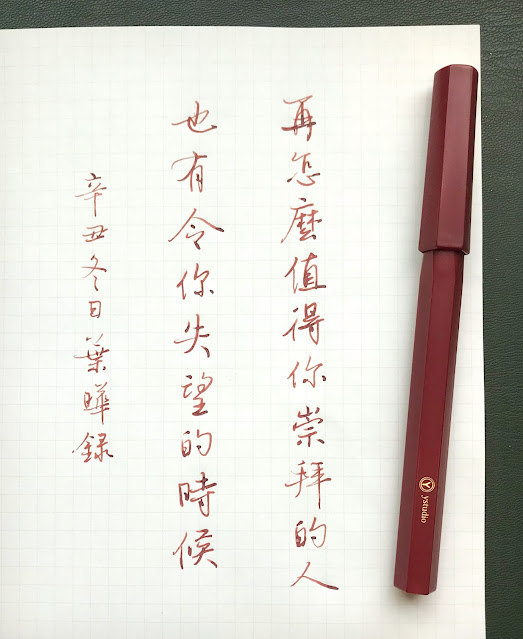 再怎麼值得你崇拜的人
也有令你失望的時候
辛丑冬日葉曄録
ystudio